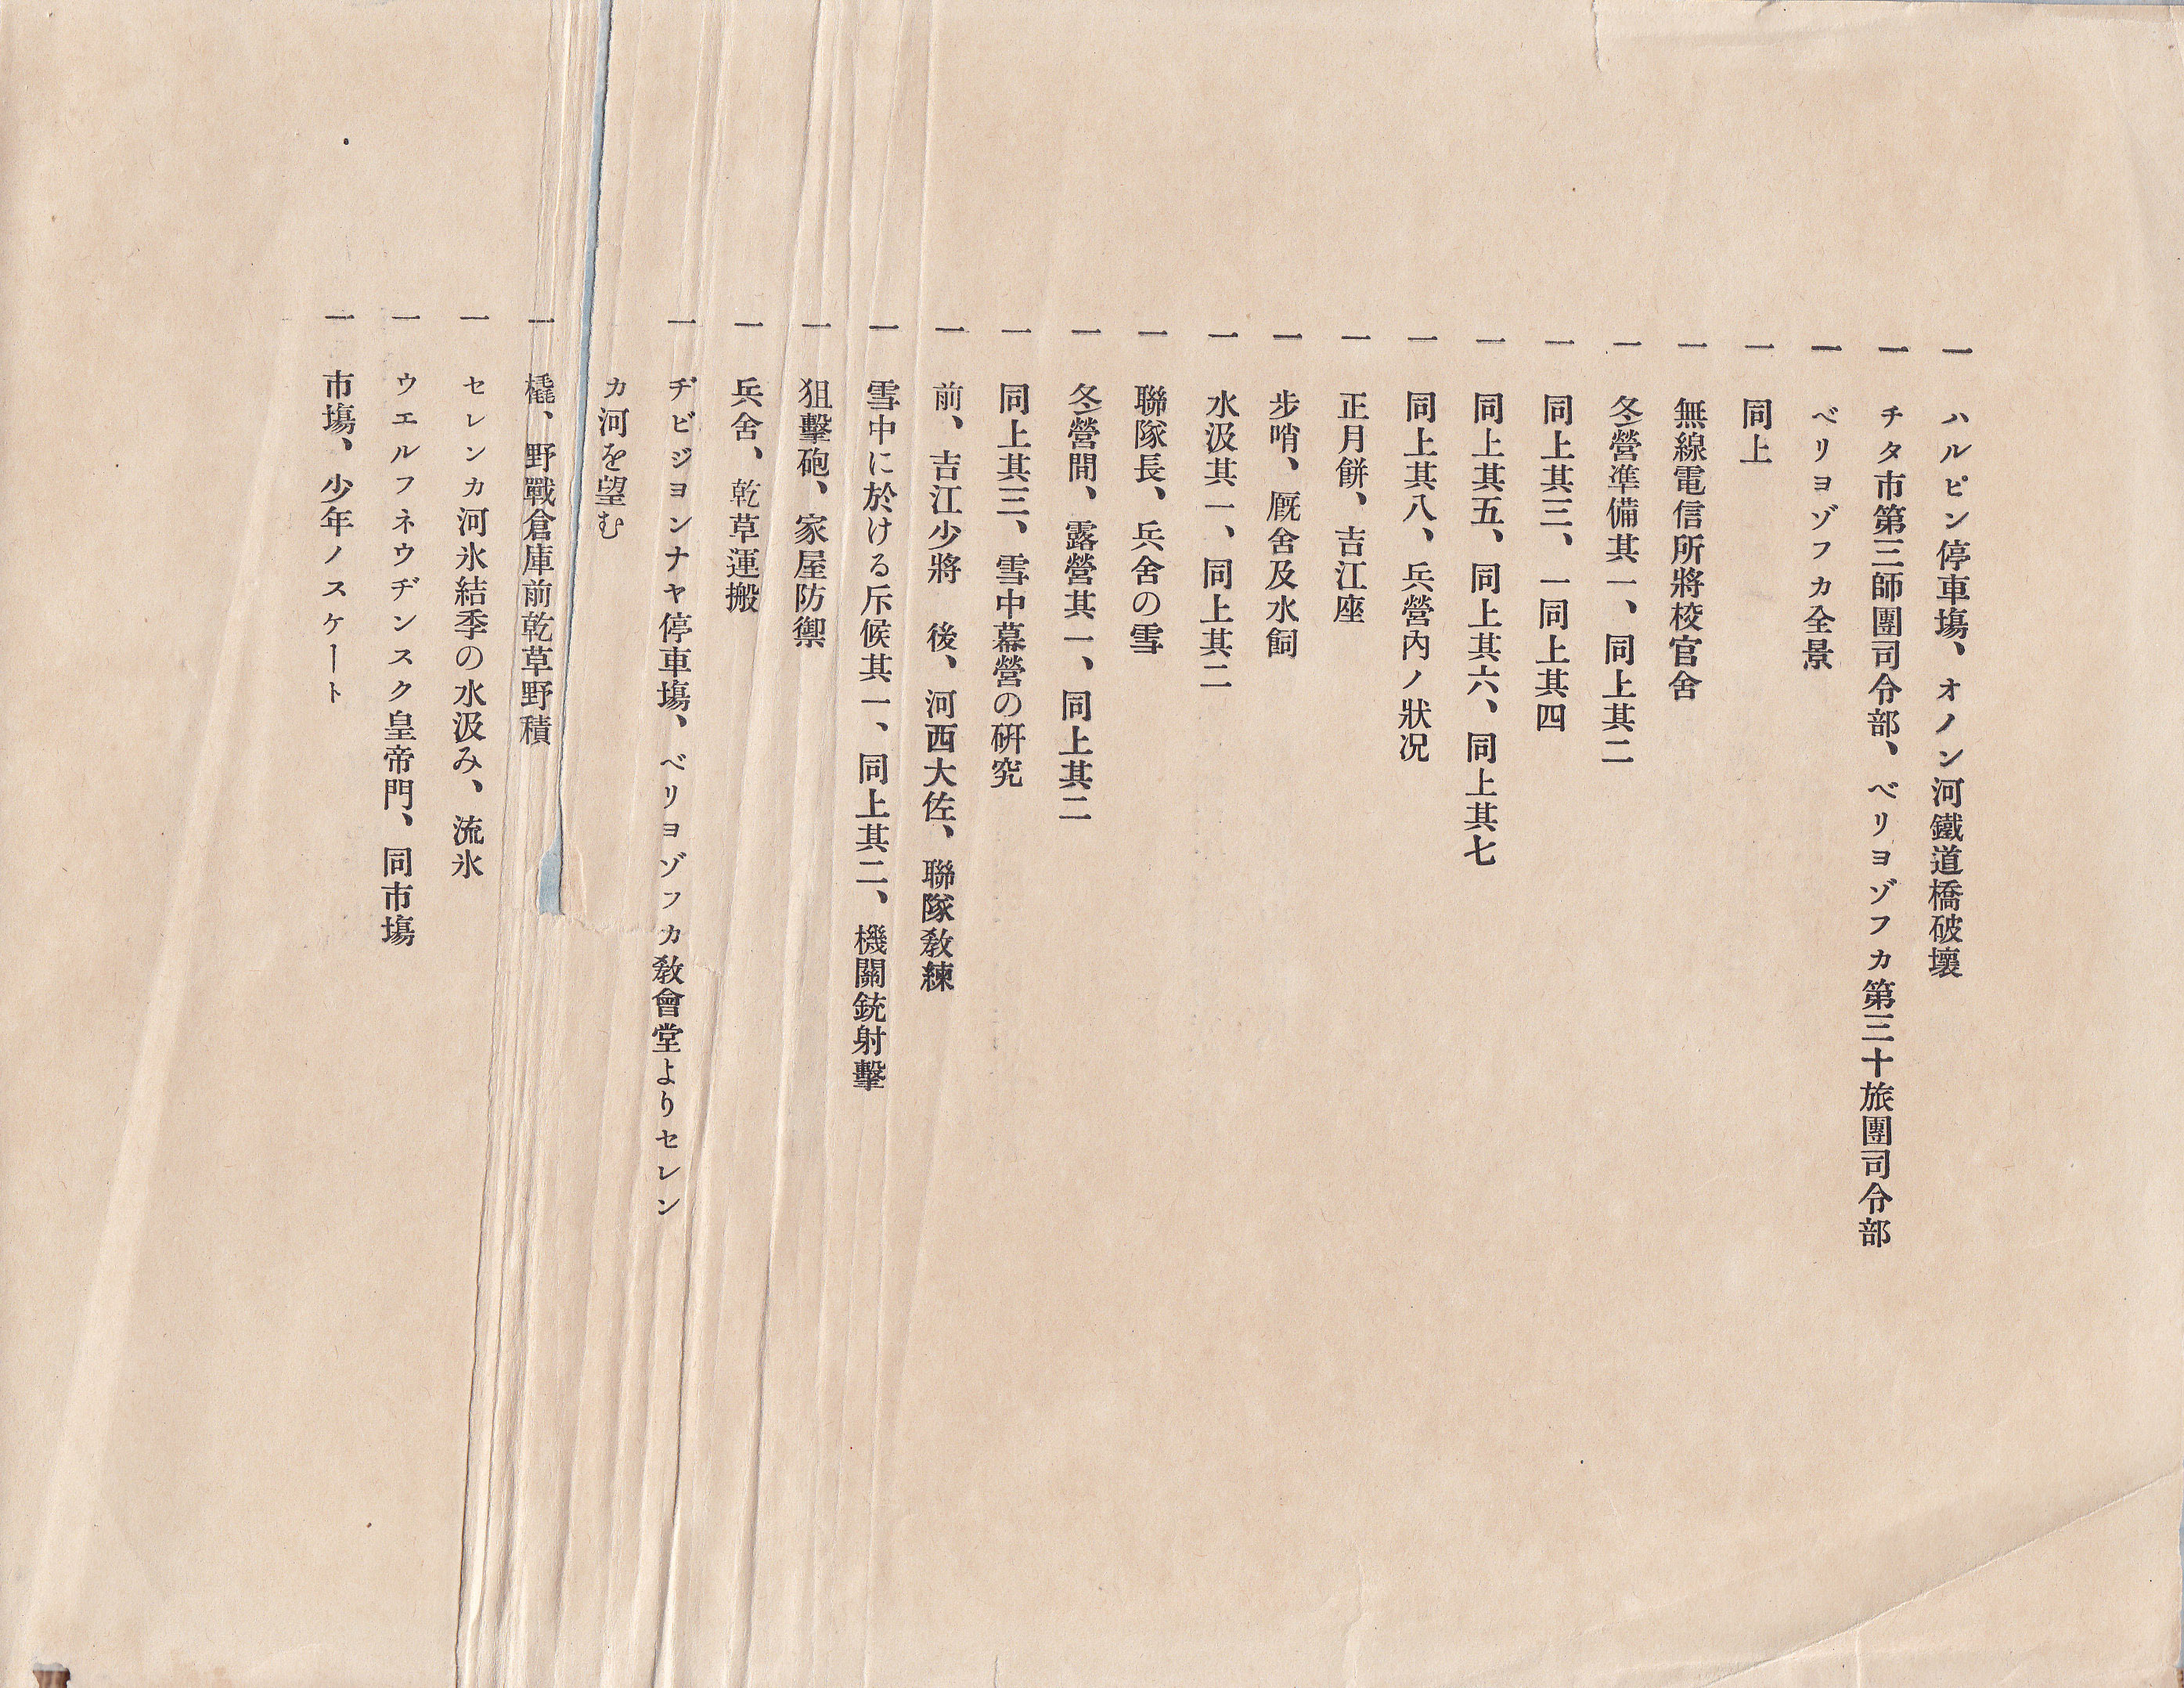 一 ハルピン停車塲、オノン河鐵道橋破壞
一 チタ市第三師團司令部、ベリヨゾフカ第三十旅團司令部
一 ベリヨゾフカ全景
一 同上
一 無線電信所將校官舍
一 冬營準備其一、同上其二
一 同上其三、一同上其四
一 同上其五、同上其六、同上其七
一 同上其八、兵營內ノ狀況
一 正月餅、吉江座
一 步哨、厩舍及水飼
一 水汲其一、同上其二
一 聯隊長、兵舍の雪
一 冬營間、露營其一、同上其二
一 同上其三、雪中幕營の硏究
一 前、吉江少將 後、河西大佐、聯隊敎練
一 雪中に於ける斥候其一、同上其二、機關銃射擊
一 狙擊砲、家屋防禦
一 兵舍、乾草運搬
一 ヂビジヨンナヤ停車塲、ベリヨゾフカ敎會堂よりセレン
カ河を望む
一 橇、野戰倉庫前乾草野積
一 セレンカ河氷結季の水汲み、流氷
一 ウエルフネウヂンスク皇帝門、同市塲
一 市塲、少年ノスケート